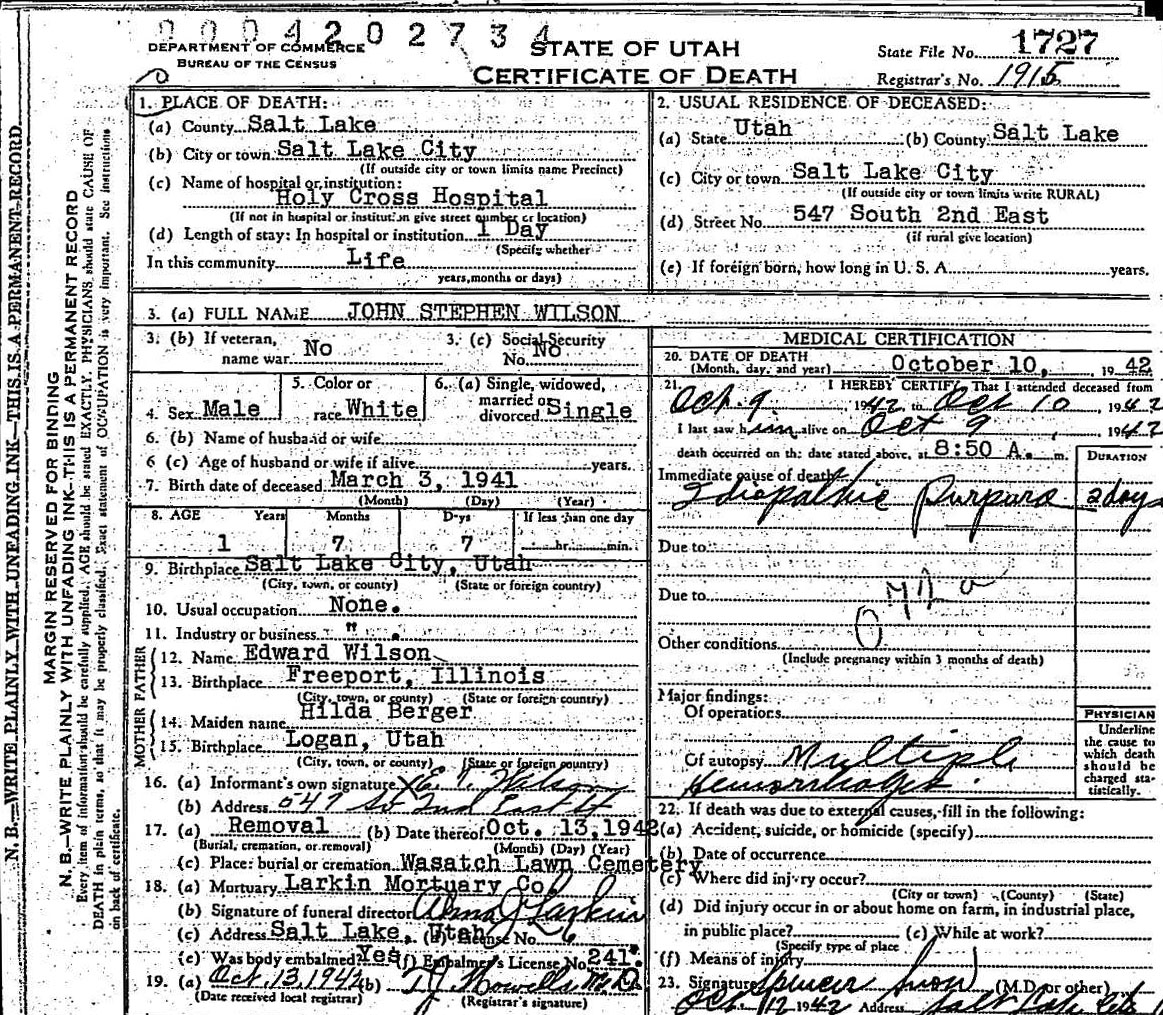 0004202734
DEPARTMENT OF COMMERCE
BUREAU OF THE CENSUS
STATE OF UTAH
CERTIFICATE OF DEATH
State File No. 1727
Registrar's No. 1915
1. PLACE OF DEATH:
(a) County Salt Lake
(b) City or town Salt Lake City
(If outside city or town limits name Precinct)
(c) Name of hospital or institution:
Holy Cross Hospital
(If not in hospital or institution give street number or location)
(d) Length of stay: In hospital or institution 1 Day
(Specify whether
In this community Life
years, months or days)
2. USUAL RESIDENCE OF DECEASED:
(a) State Utah (b) County Salt Lake
(c) City or town Salt Lake City
(If outside city or town limits write RURAL)
(d) Street No. 547 South 2nd East
(if rural give location)
(e) If foreign born, how long in U. S. A. years.
3. (a) FULL NAME JOHN STEPHEN WILSON
3. (b) If veteran, name war No
3. (c) Social Security No. No
4. Sex Male
5. Color or race White
6. (a) Single, widowed, married or divorced Single
6. (b) Name of husband or wife
6 (c) Age of husband or wife if alive years.
7. Birth date of deceased March 3, 1941
(Month) (Day) (Year)
8. AGE Years Months Days If less than one day
1 7 7 hr. min.
9. Birthplace Salt Lake City, Utah
(City, town, or county) (State or foreign country)
10. Usual occupation None.
11. Industry or business " .
FATHER
12. Name Edward Wilson
13. Birthplace Freeport, Illinois
(City, town, or county) (State or foreign country)
MOTHER
14. Maiden name Hilda Berger
15. Birthplace Logan, Utah
(City, town, or county) (State or foreign country)
16. (a) Informant's own signature X E. V. Wilson
(b) Address 547 So 2nd East St
17. (a) Removal (b) Date thereof Oct. 13, 1942
(Burial, cremation, or removal) (Month) (Day) (Year)
(c) Place: burial or cremation Wasatch Lawn Cemetery
18. (a) Mortuary Larkin Mortuary Co.
(b) Signature of funeral director Alma J Larkin
(c) Address Salt Lake, Utah License No. 6
(e) Was body embalmed? Yes (f) Embalmer's License No. 241.
19. (a) Oct 13, 1942 (b) T J Howells M.D.
(Date received local registrar) (Registrar's signature)
MEDICAL CERTIFICATION
20. DATE OF DEATH October 10, 1942
(Month, day, and year)
21. I HEREBY CERTIFY That I attended deceased from
Oct. 9 1942 to Oct 10, 1942
I last saw him alive on Oct 9, 1942
death occurred on the date stated above, at 8:50 A. m.
DURATION
Immediate cause of death
Idiopathic Purpura 2 days
Due to
Due to
Other conditions
(Include pregnancy within 3 months of death)
Major findings:
Of operations
Of autopsy Multiple
hemorrhages.
PHYSICIAN
Underline
the cause to
which death
should be
charged sta-
tistically.
22. If death was due to external causes, fill in the following:
(a) Accident, suicide, or homicide (specify)
(b) Date of occurrence
(c) Where did injury occur?
(City or town) (County) (State)
(d) Did injury occur in or about home on farm, in industrial place,
in public place? (e) While at work?
(Specify type of place
(f) Means of injury
23. Signature Spencer (M.D. or other)
Oct. 12 1942 Address Salt Lake City
N. B.—WRITE PLAINLY WITH UNFADING INK—THIS IS A PERMANENT RECORD.
MARGIN RESERVED FOR BINDING
N. B.—WRITE PLAINLY WITH UNFADING INK—THIS IS A PERMANENT RECORD
Every item of information should be carefully supplied. AGE should be stated EXACTLY. PHYSICIANS should state CAUSE OF
DEATH in plain terms, so that it may be properly classified. Exact statement of OCCUPATION is very important. See instructions
on back of certificate.